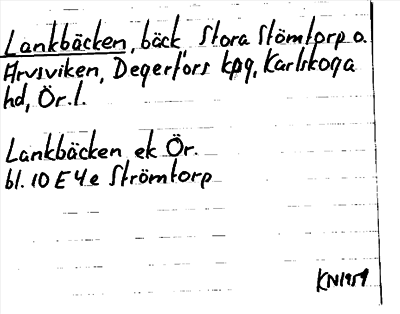 Lankbäcken, bäck Stora Stömtorp o.
Arvsviken, Degerfors kpg, Karlskoga
hd, Ör.l.
Lankbäcken ek Ör.
bl. 10 E 4e Strömtorp
KN1959